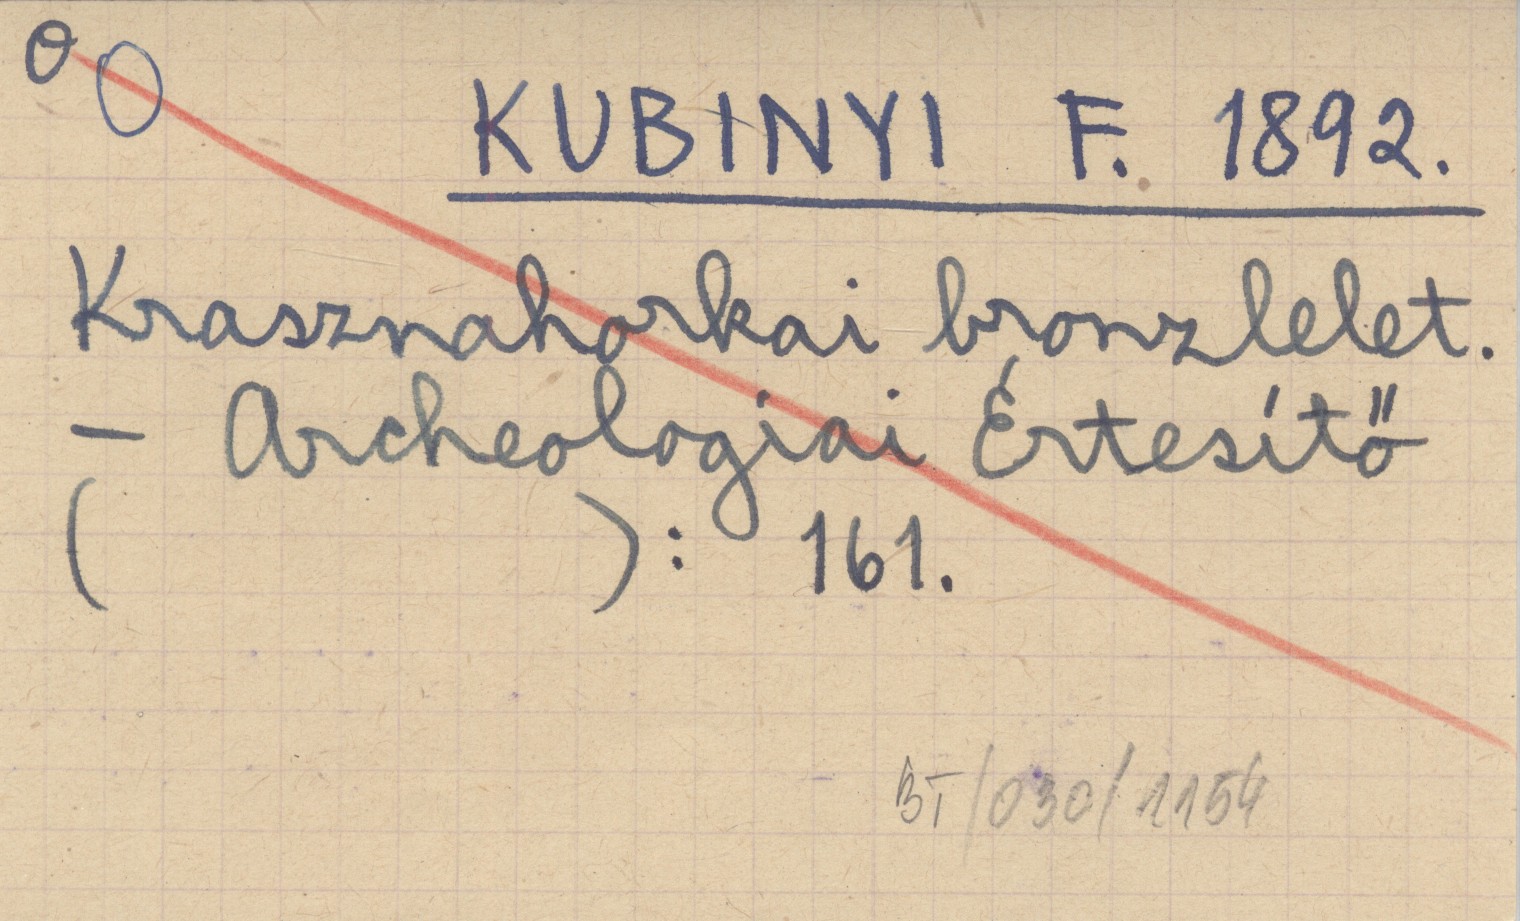 KUBINYI F. 1892.
Krasznahorkai bronzlelet.
– Archeologiai Értesítő
( ): 161.
BT/030/1154